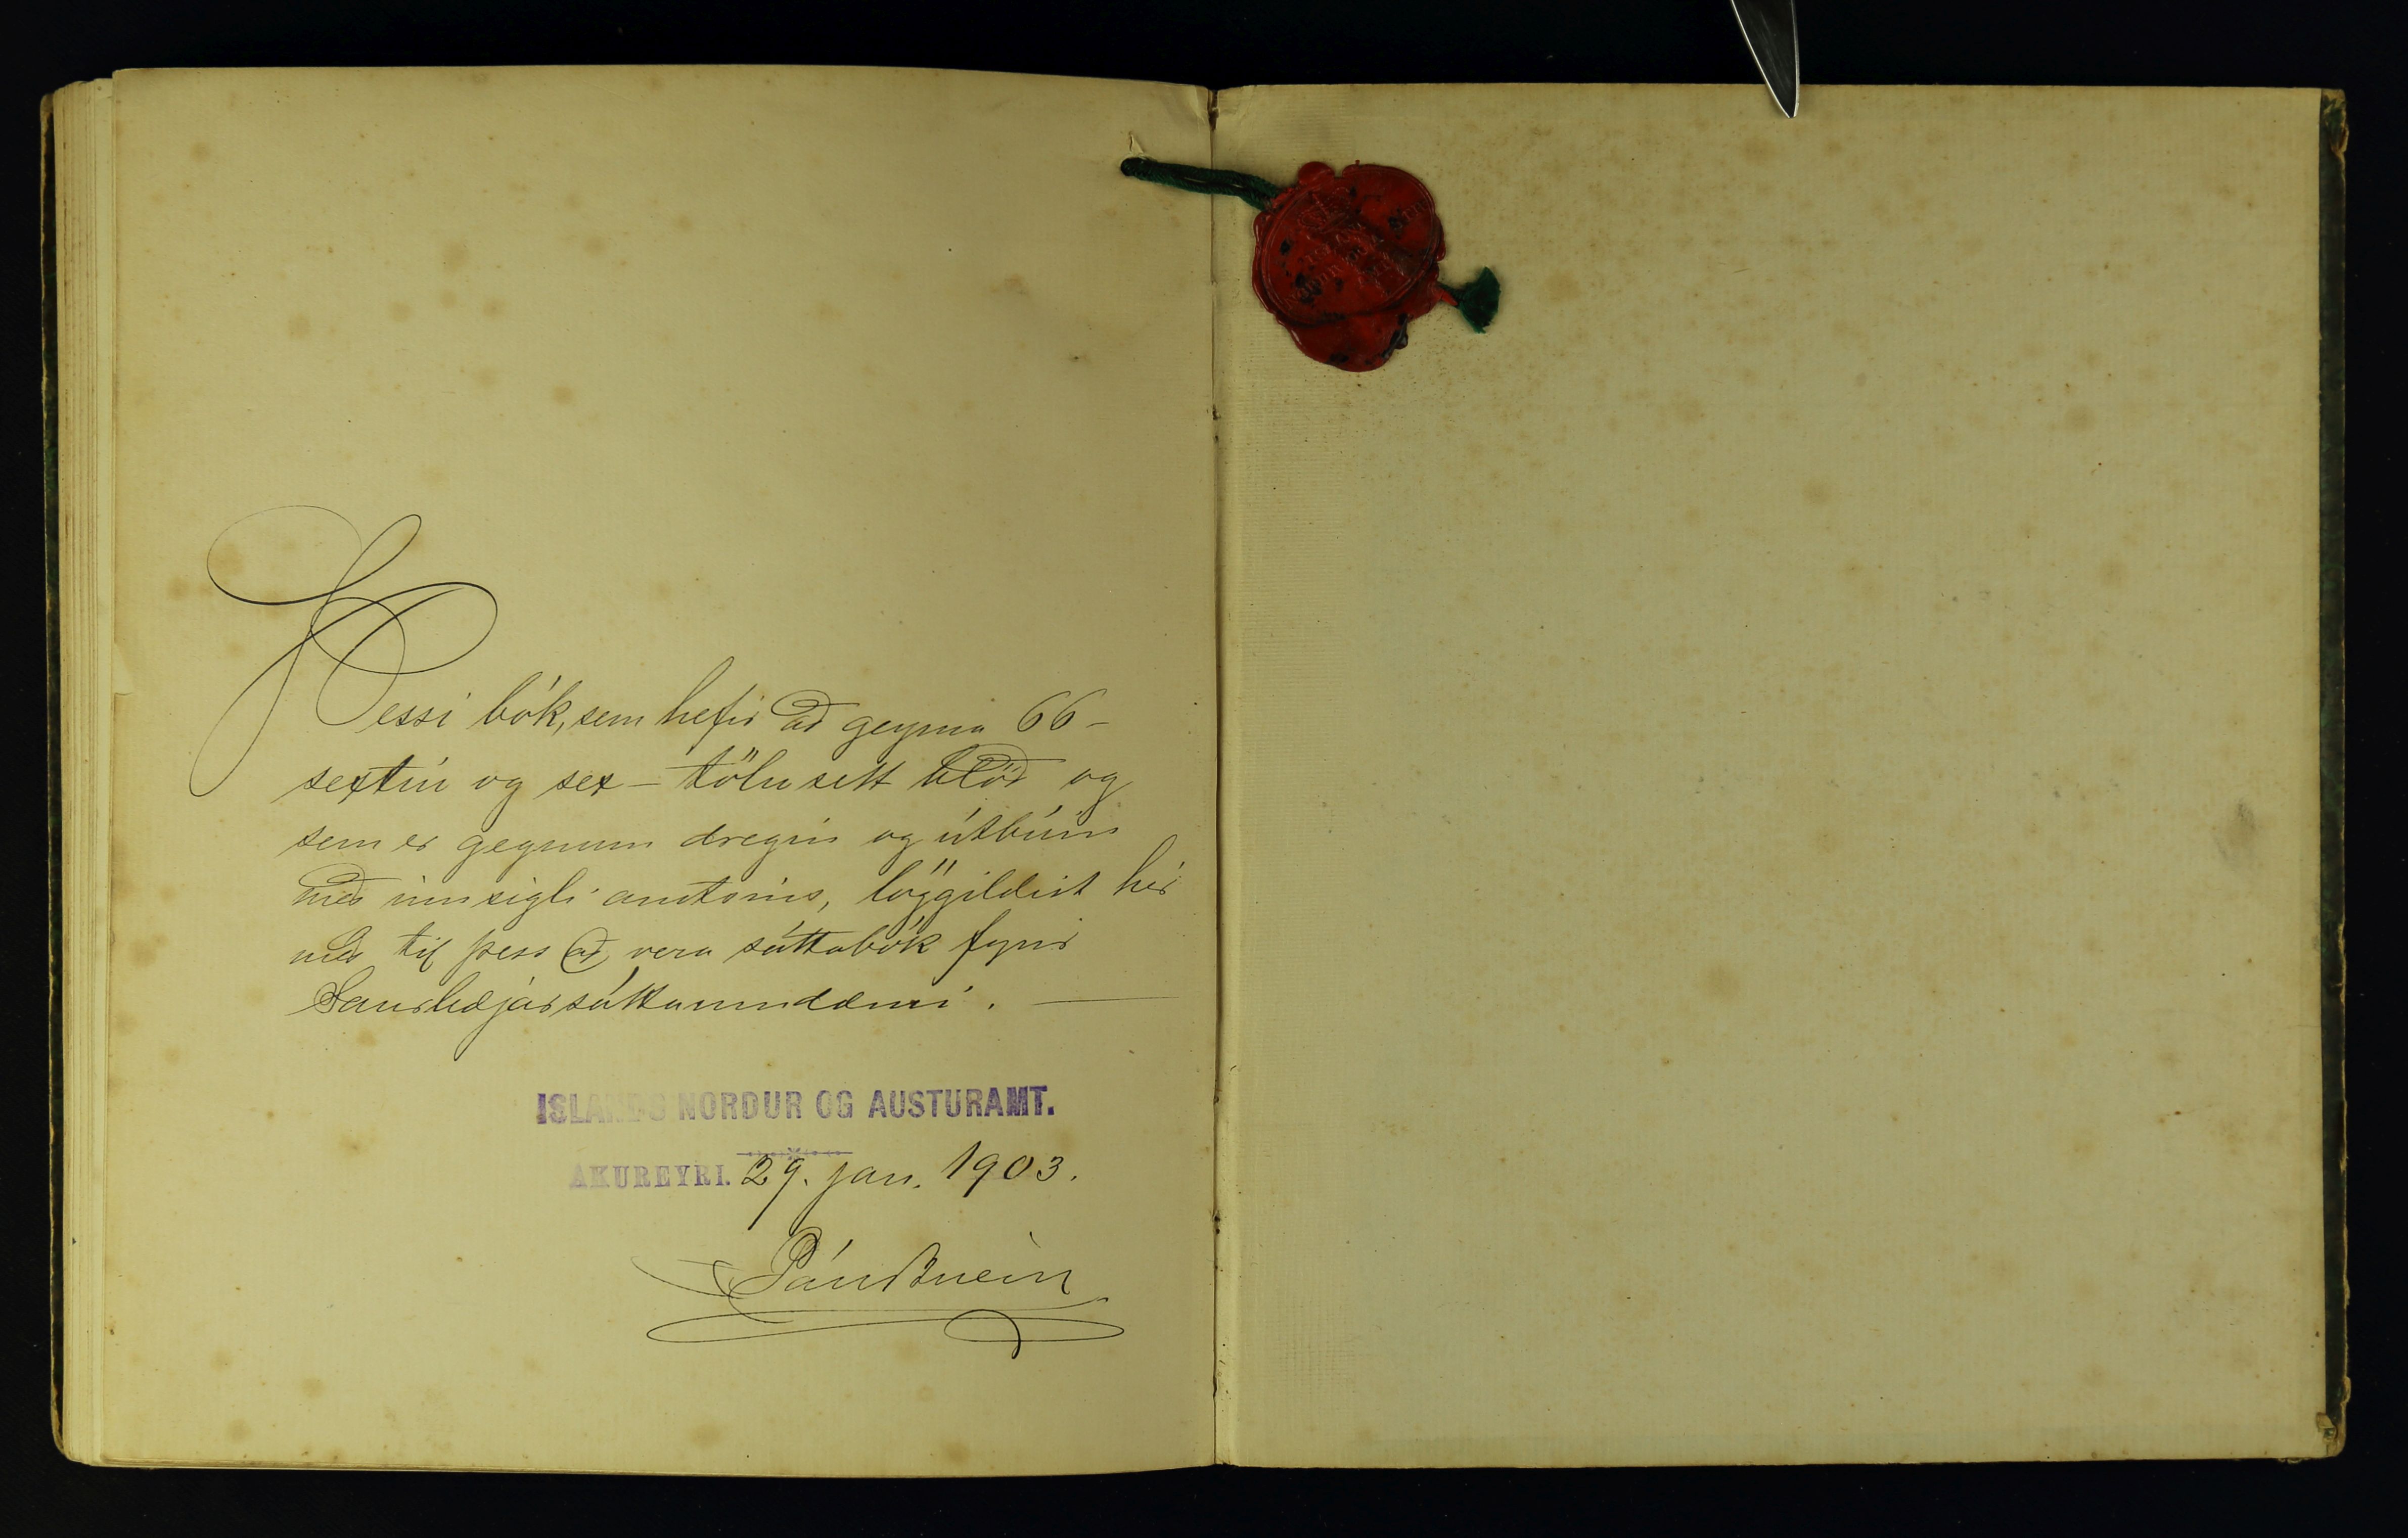 Þessi bók, sem hefir að geyma 66 -
sextíu og sex - tölusett blöð og
sem er gegnum dregin og útbúin
með innsigli amtsins, löggildist hér
með til þess að vera sáttabók fyrir
sáttaumdæmi. —
ISLANDS NORDUR OG AUSTURAMT.
AKUREYRI. 29. jan. 1903.
Páll Briem